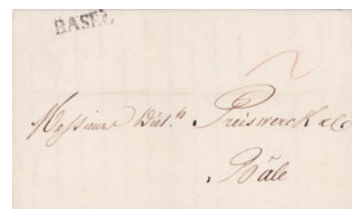 BASEL
Messieurs Diet.^h Preiswerck & Co
Bâle